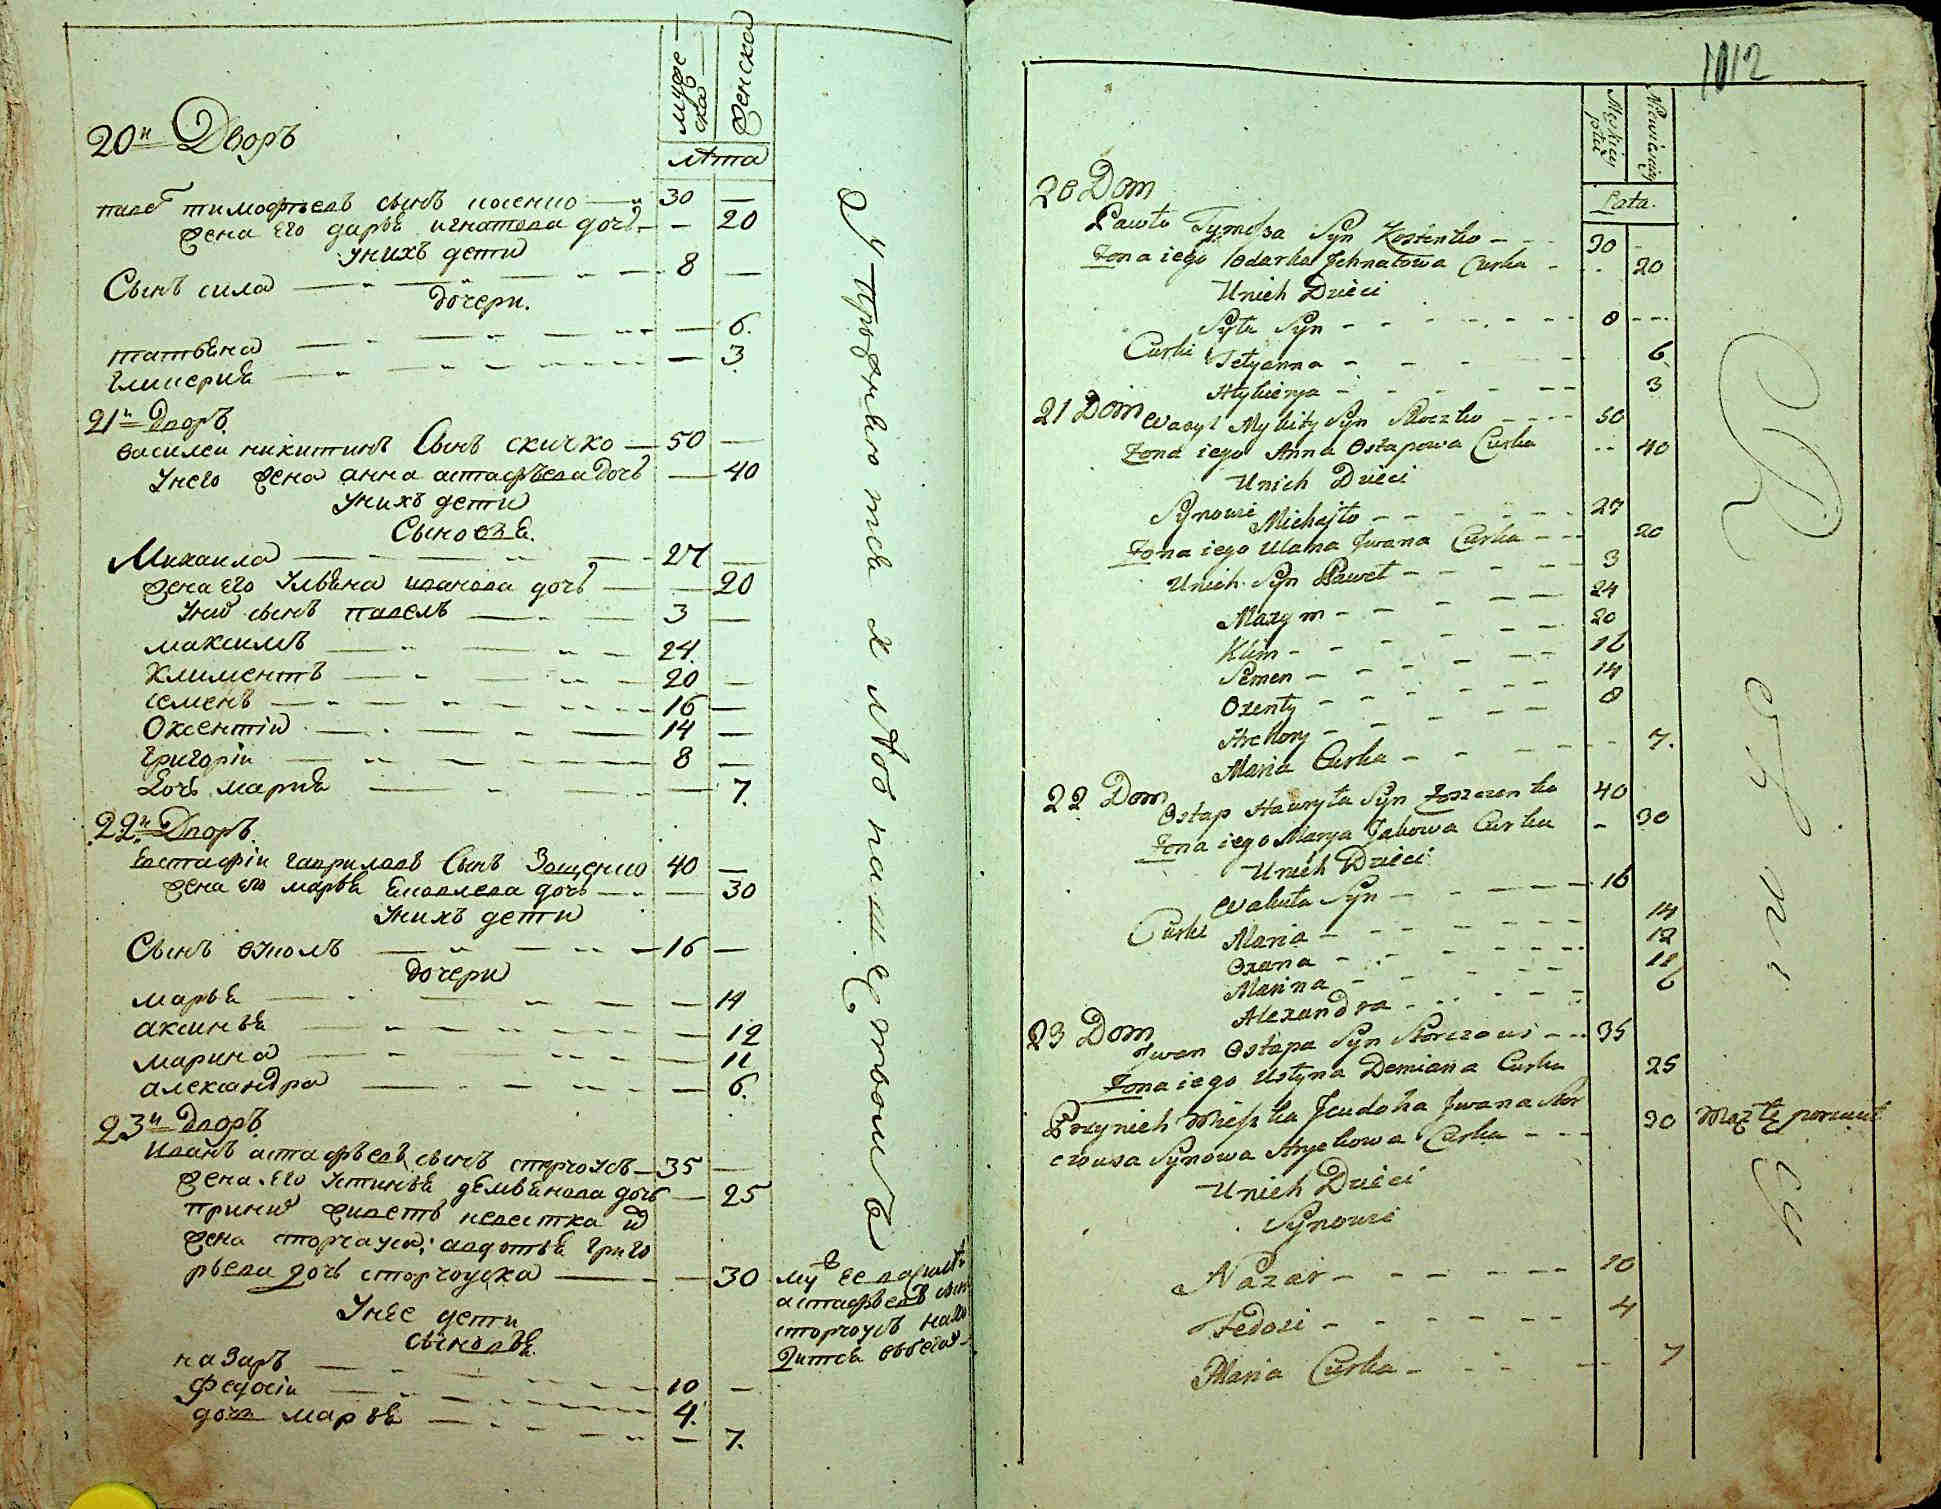 муже
ска
женска
лѣта
20й Дворъ
павел тимофѣевъ сынъ косенко 30 —
жена его дарья игнатова дочь — 20
у нихъ дети
Сынъ сила 8 —
дочери.
татьяна — 6.
гликерия — 3
21й Дворъ
василеи никитинъ Сынъ скичко 50 —
у него жена анна астафьева дочь — 40
у нихъ дети
Сыновья.
Михаила 27 —
жена его Ульяна иванова дочь — 20
у них сынъ павелъ 3 —
максимъ 24.
климентъ 20 —
семенъ 16 —
Оксентіи 14 —
григоріи 8 —
дочь мария — 7.
22й Дворъ
Евстафіи гавриловъ Сынъ Зощенко 40 —
жена его марья яковлева дочь — 30
у нихъ дети
Сынъ вуколъ 16 —
дочери
марья — 14
аксинья — 12
марина — 11
александра — 6.
23й Дворъ
Иванъ астафьевъ сынъ сторчоусъ 35 —
жена его Устинья демьянова дочь — 25
при них живетъ невестка и
жена сторчауса: авдотья григо
рьева дочь сторчоуска — 30
у нее дети
сыновья
назаръ 10 —
федосіи 4.
дочь марья — 7.
муж ее
астафьевъ сын
сторчоусъ нахо
дитса вбегах
1012
Męskiey
płci
Niewieściey
Lata.
20 Dom
Pawło Tymofza Syn Kostenko 30
Żona iego Odarka Jehnatowa Curka 20
U nich Dzieci
Syła Syn 8
Curki Tetyanna 6
Hlykierya 3
21 Dom Wasyl Mykity Syn Skoczko 50
Żona iego Anna Ostapowa Curka 40
U nich Dzieci
Synowi Michajło 27
Żona iego Ulana Jwana Curka 20
U nich Syn Paweł 3
Maxym 24
Klim 20
Semen 16
Oxenty 14
Hrehory 8
Maria Curka 7.
22 Dom Ostap Hawryła Syn Zoszczenko 40
Żona iego Marya Jakowa Curka 30
U nich Dzieci
Wakuła Syn 16
Curki Maria 14
Oxana 12
Marina 11
Alexandra 6
23 Dom Jwan Ostapa Syn Storczous 35
Żona iego Ustyna Demiana Curka 25
Przy nich Mieszka Jeudoha Jwana Stor
czousa Synowa Hryckowa Curka 30 Mąż tę porzucił
U nich Dzieci
Synowi
Nazar 10
Fedosi 4
Maria Curka 7